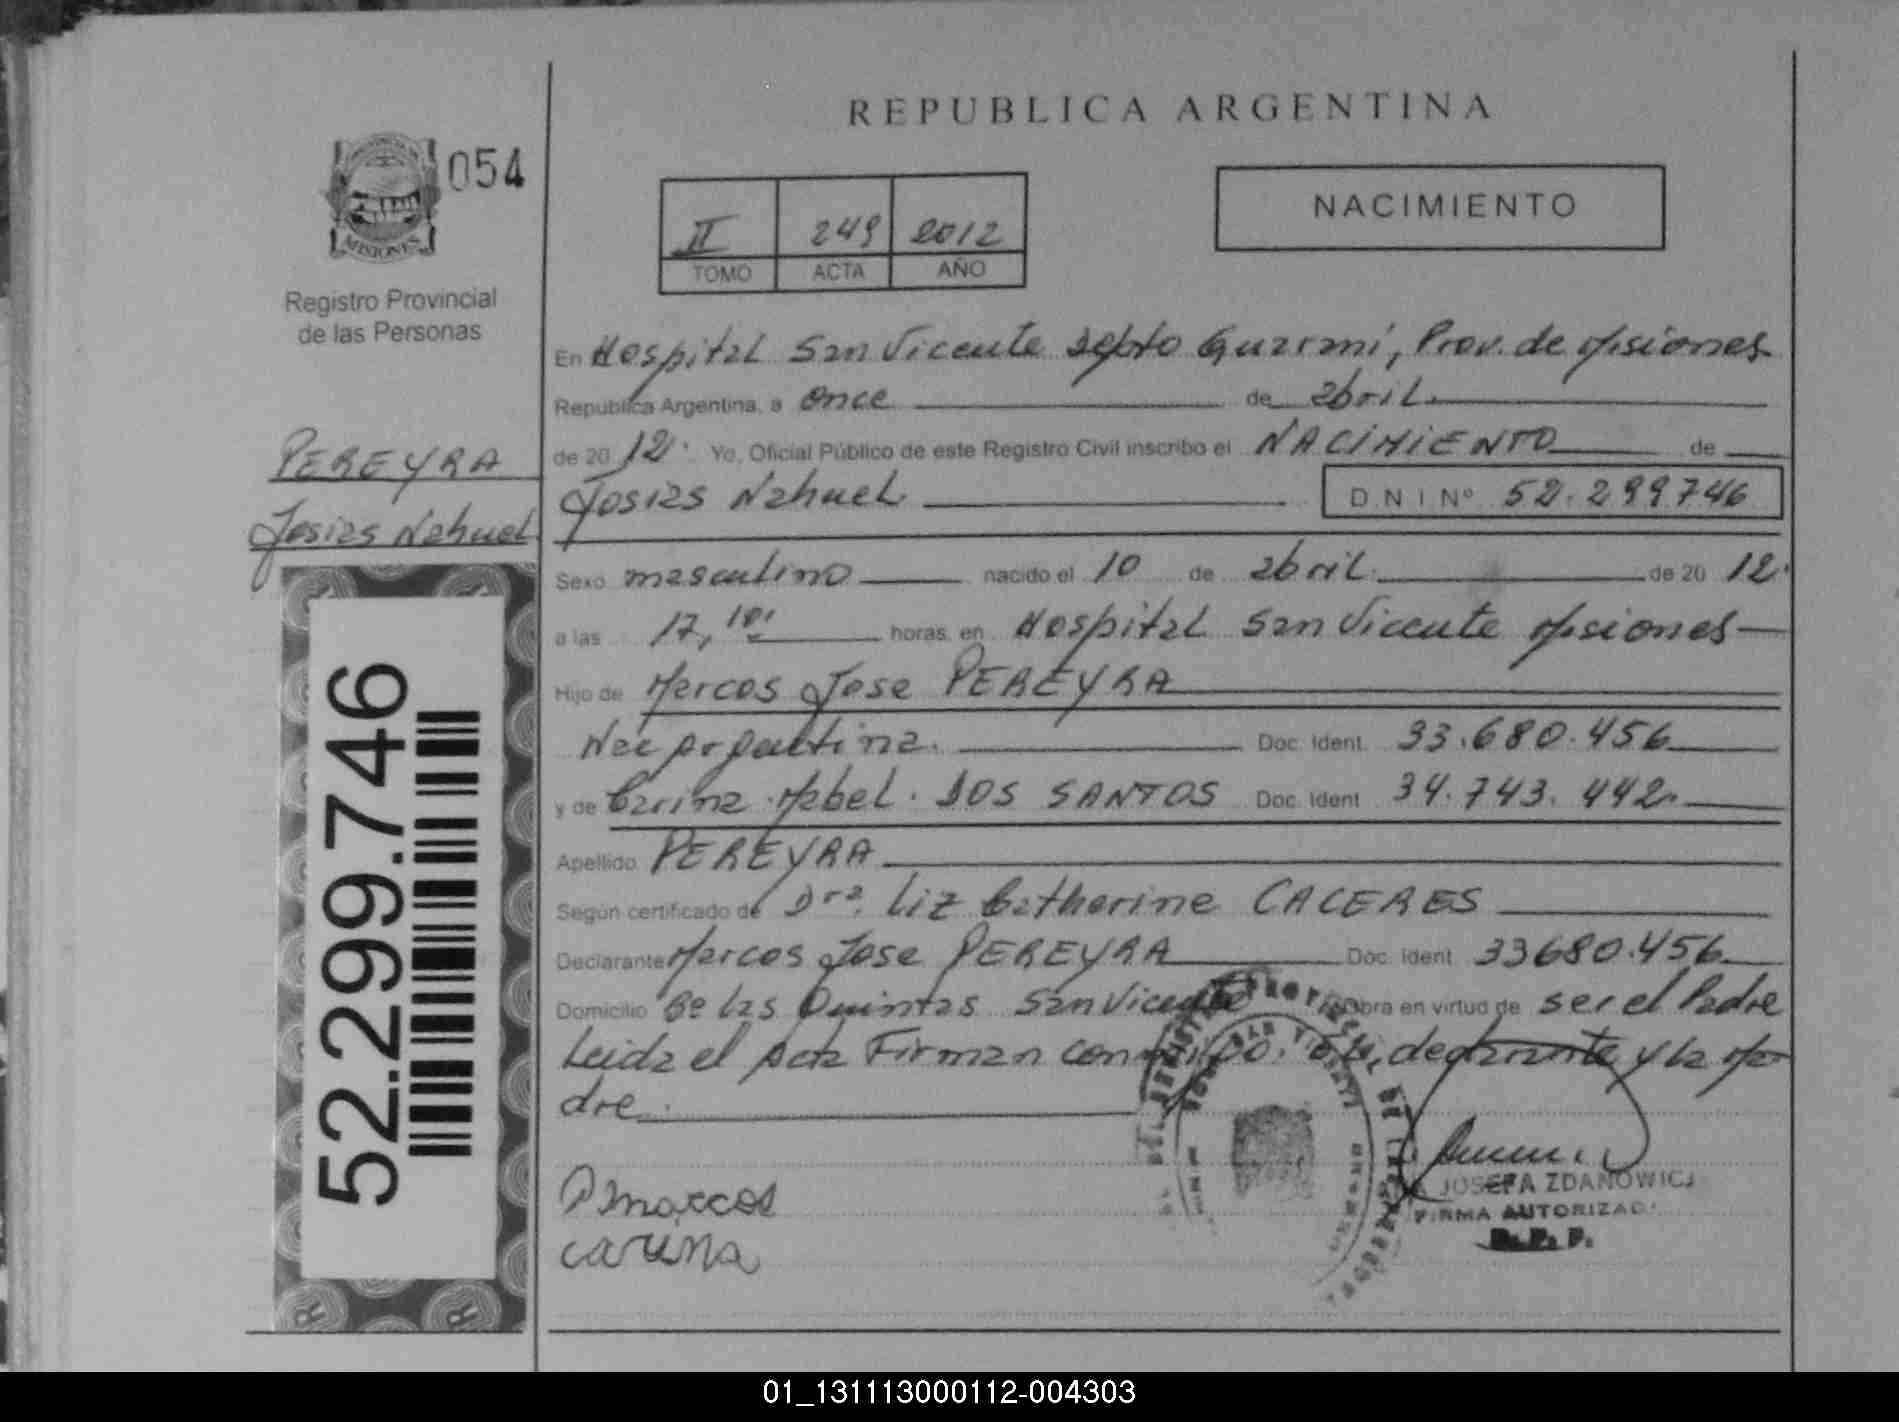 REPUBLICA ARGENTINA
054
MISIONES
Registro Provincial
de las Personas
II 249 2012
TOMO ACTA AÑO
NACIMIENTO
PEREYRA
Josias Nahuel
52.299.746
En Hospital San Vicente Depto Guarani, Prov. de Misiones
Republica Argentina, a once de abril.
de 20 12. Yo, Oficial Público de este Registro Civil inscribo el NACIMIENTO de
Josias Nahuel DNI Nº 52.299746
Sexo masculino nacido el 10 de abril. de 20 12.
a las 17,10' horas, en Hospital San Vicente Misiones
Hijo de Marcos Jose PEREYRA
Nac argentina. Doc. Ident. 33.680.456
y de Carina Mabel. DOS SANTOS Doc. Ident 34.743.442.
Apellido PEREYRA
Según certificado de Dra. Liz Catherine CACERES
Declarante Marcos Jose PEREYRA Doc. Ident 33680.456
Domicilio Bº las Quintas San Vicente Obra en virtud de ser el Padre
Leida el acta Firman conmigo. el declarante y la Ma
dre.
P marcos
carina
JOSEFA ZDANOWICZ
FIRMA AUTORIZAD
R. P. P.
01_131113000112-004303